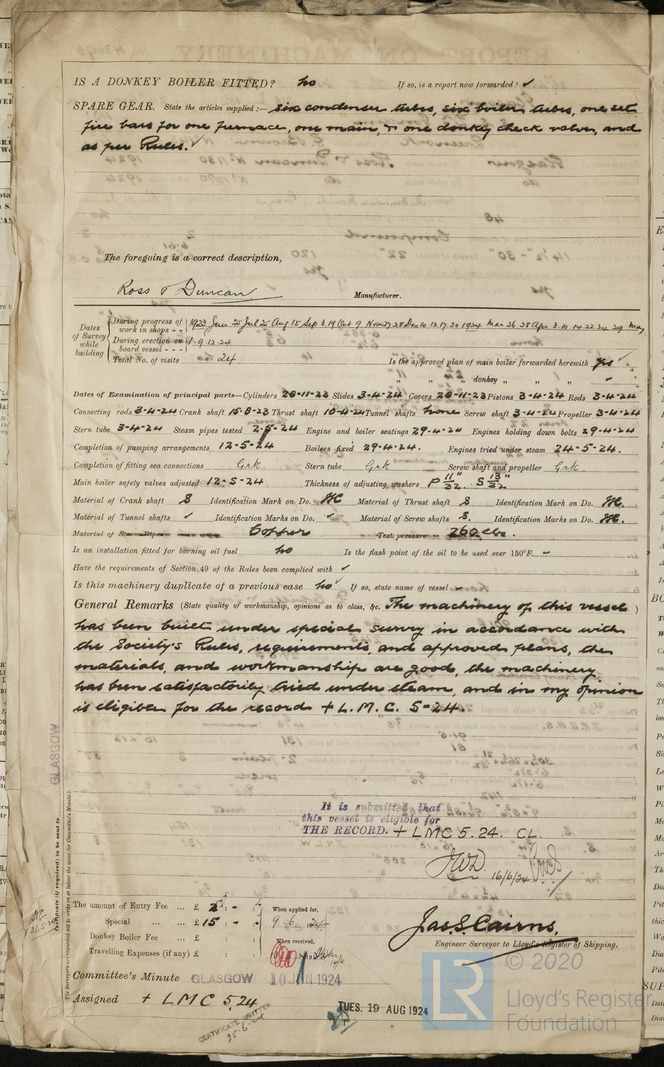 IS A DONKEY BOILER FITTED? no If so, is a report now forwarded? ✓
SPARE GEAR. State the articles supplied:— six condenser tubes, six boiler tubes, one set
fire bars for one furnace, one main, & one donkey check valves, and
as per Rules. ✓
The foregoing is a correct description,
Ross & Duncan Manufacturer.
Dates of Survey while building
During progress of work in shops - - 1923 Jun 25 Jul 25 Aug 15 Sep 3.19 Oct 9 Nov 27.28 Dec 10.13.17.20 1924 Mar 26.28 Apr 3.10.14.22.24.29 May
During erection on board vessel - - - 1.9.12.24
Total No. of visits 24 Is the approved plan of main boiler forwarded herewith yes ✓
" " " donkey " " "
Dates of Examination of principal parts—Cylinders 28-11-23 Slides 3-4-24 Covers 28-11-23 Pistons 3-4-24 Rods 3-4-24
Connecting rods 3-4-24 Crank shaft 15-8-23 Thrust shaft 10-4-24 Tunnel shafts none Screw shaft 3-4-24 Propeller 3-4-24
Stern tube 3-4-24 Steam pipes tested Engine and boiler seatings 29-4-24 Engines holding down bolts 29-4-24
Completion of pumping arrangements 12-5-24 Boilers fixed 29-4-24. Engines tried under steam 24-5-24.
Completion of fitting sea connections Grk Stern tube Grk Screw shaft and propeller Grk
Main boiler safety valves adjusted 12-5-24 Thickness of adjusting washers P 11/32" S 13/32"
Material of Crank shaft S Identification Mark on Do. Material of Thrust shaft S Identification Mark on Do.
Material of Tunnel shafts ✓ Identification Marks on Do. ✓ Material of Screw shafts S. Identification Marks on Do.
Material of Steam Pipes Copper Test pressure 260 lbs.
Is an installation fitted for burning oil fuel no Is the flash point of the oil to be used over 150°F. –
Have the requirements of Section 49 of the Rules been complied with ✓
Is this machinery duplicate of a previous case no If so, state name of vessel –
General Remarks (State quality of workmanship, opinions as to class, &c. The machinery of this vessel)
has been built under special survey in accordance with
the Society's Rules, requirements, and approved plans, the
materials, and workmanship are good, the machinery
has been satisfactorily tried under steam, and in my opinion
is eligible for the record + L.M.C. 5-24.
GLASGOW
It is submitted that
this vessel is eligible for
THE RECORD. + LMC 5.24. CL.
16/6/24
The amount of Entry Fee ... £ : - : When applied for,
Special ... ... £ 15 : - : 9-6-24
Donkey Boiler Fee ... £ : : When received,
Travelling Expenses (if any) £ : :
Jas S Cairns,
Engineer Surveyor to Lloyd's Register of Shipping.
Committee's Minute GLASGOW 10 JUN 1924
Assigned + LMC 5,24
CERTIFICATE WRITTEN
25-6-24
TUES. 19 AUG 1924
© 2020
Lloyd's Register
Foundation
LR